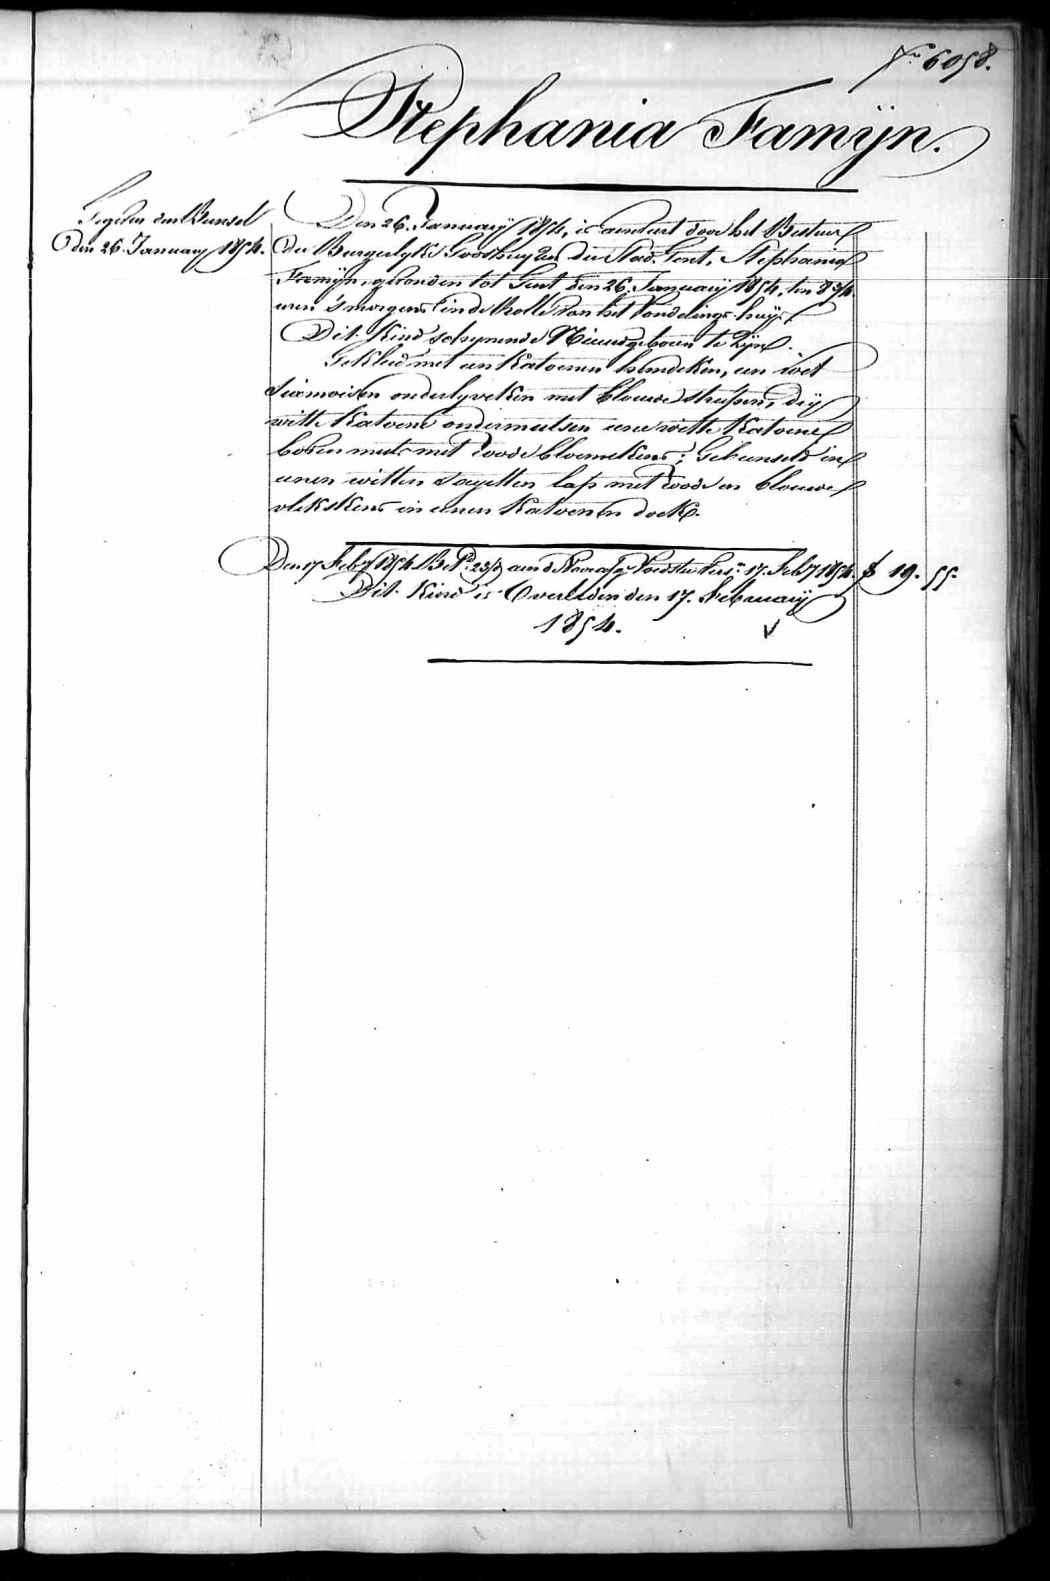 No 6058.
Stephania Famÿn.
den Bunsel
Den 26. January 1854.
Den 26. Januarÿ 1854, is aenveert door het Bestuer
der Burgerlyke Godshuyzen der Stad Gent, Stephania
Famÿn, gevonden tot Gent den 26. Januarÿ 1854, ten 8 3/4
uren 's morgens in de Rolle van het Vondelings-huys.
Dit Kind schynende Nieuwgeboren te Zyn.
Gekleed met een Katoenen hemdeken, een wet
siamoisen onderlyveken met blouwe streepen, dry
witte Katoene ondermutsen eene witte Katoene
boven muts met roode bloemekens; Gebunseld in
eenen witten sayetten lap met roode en blouwe
vlekskens in eenen Katoenen doek.
Den 17 Feby 1854 Bet. aen de Voedster 17. Feby 1854. f 19. 55.
Dit Kind is Overleden den 17. Februarÿ
1854.